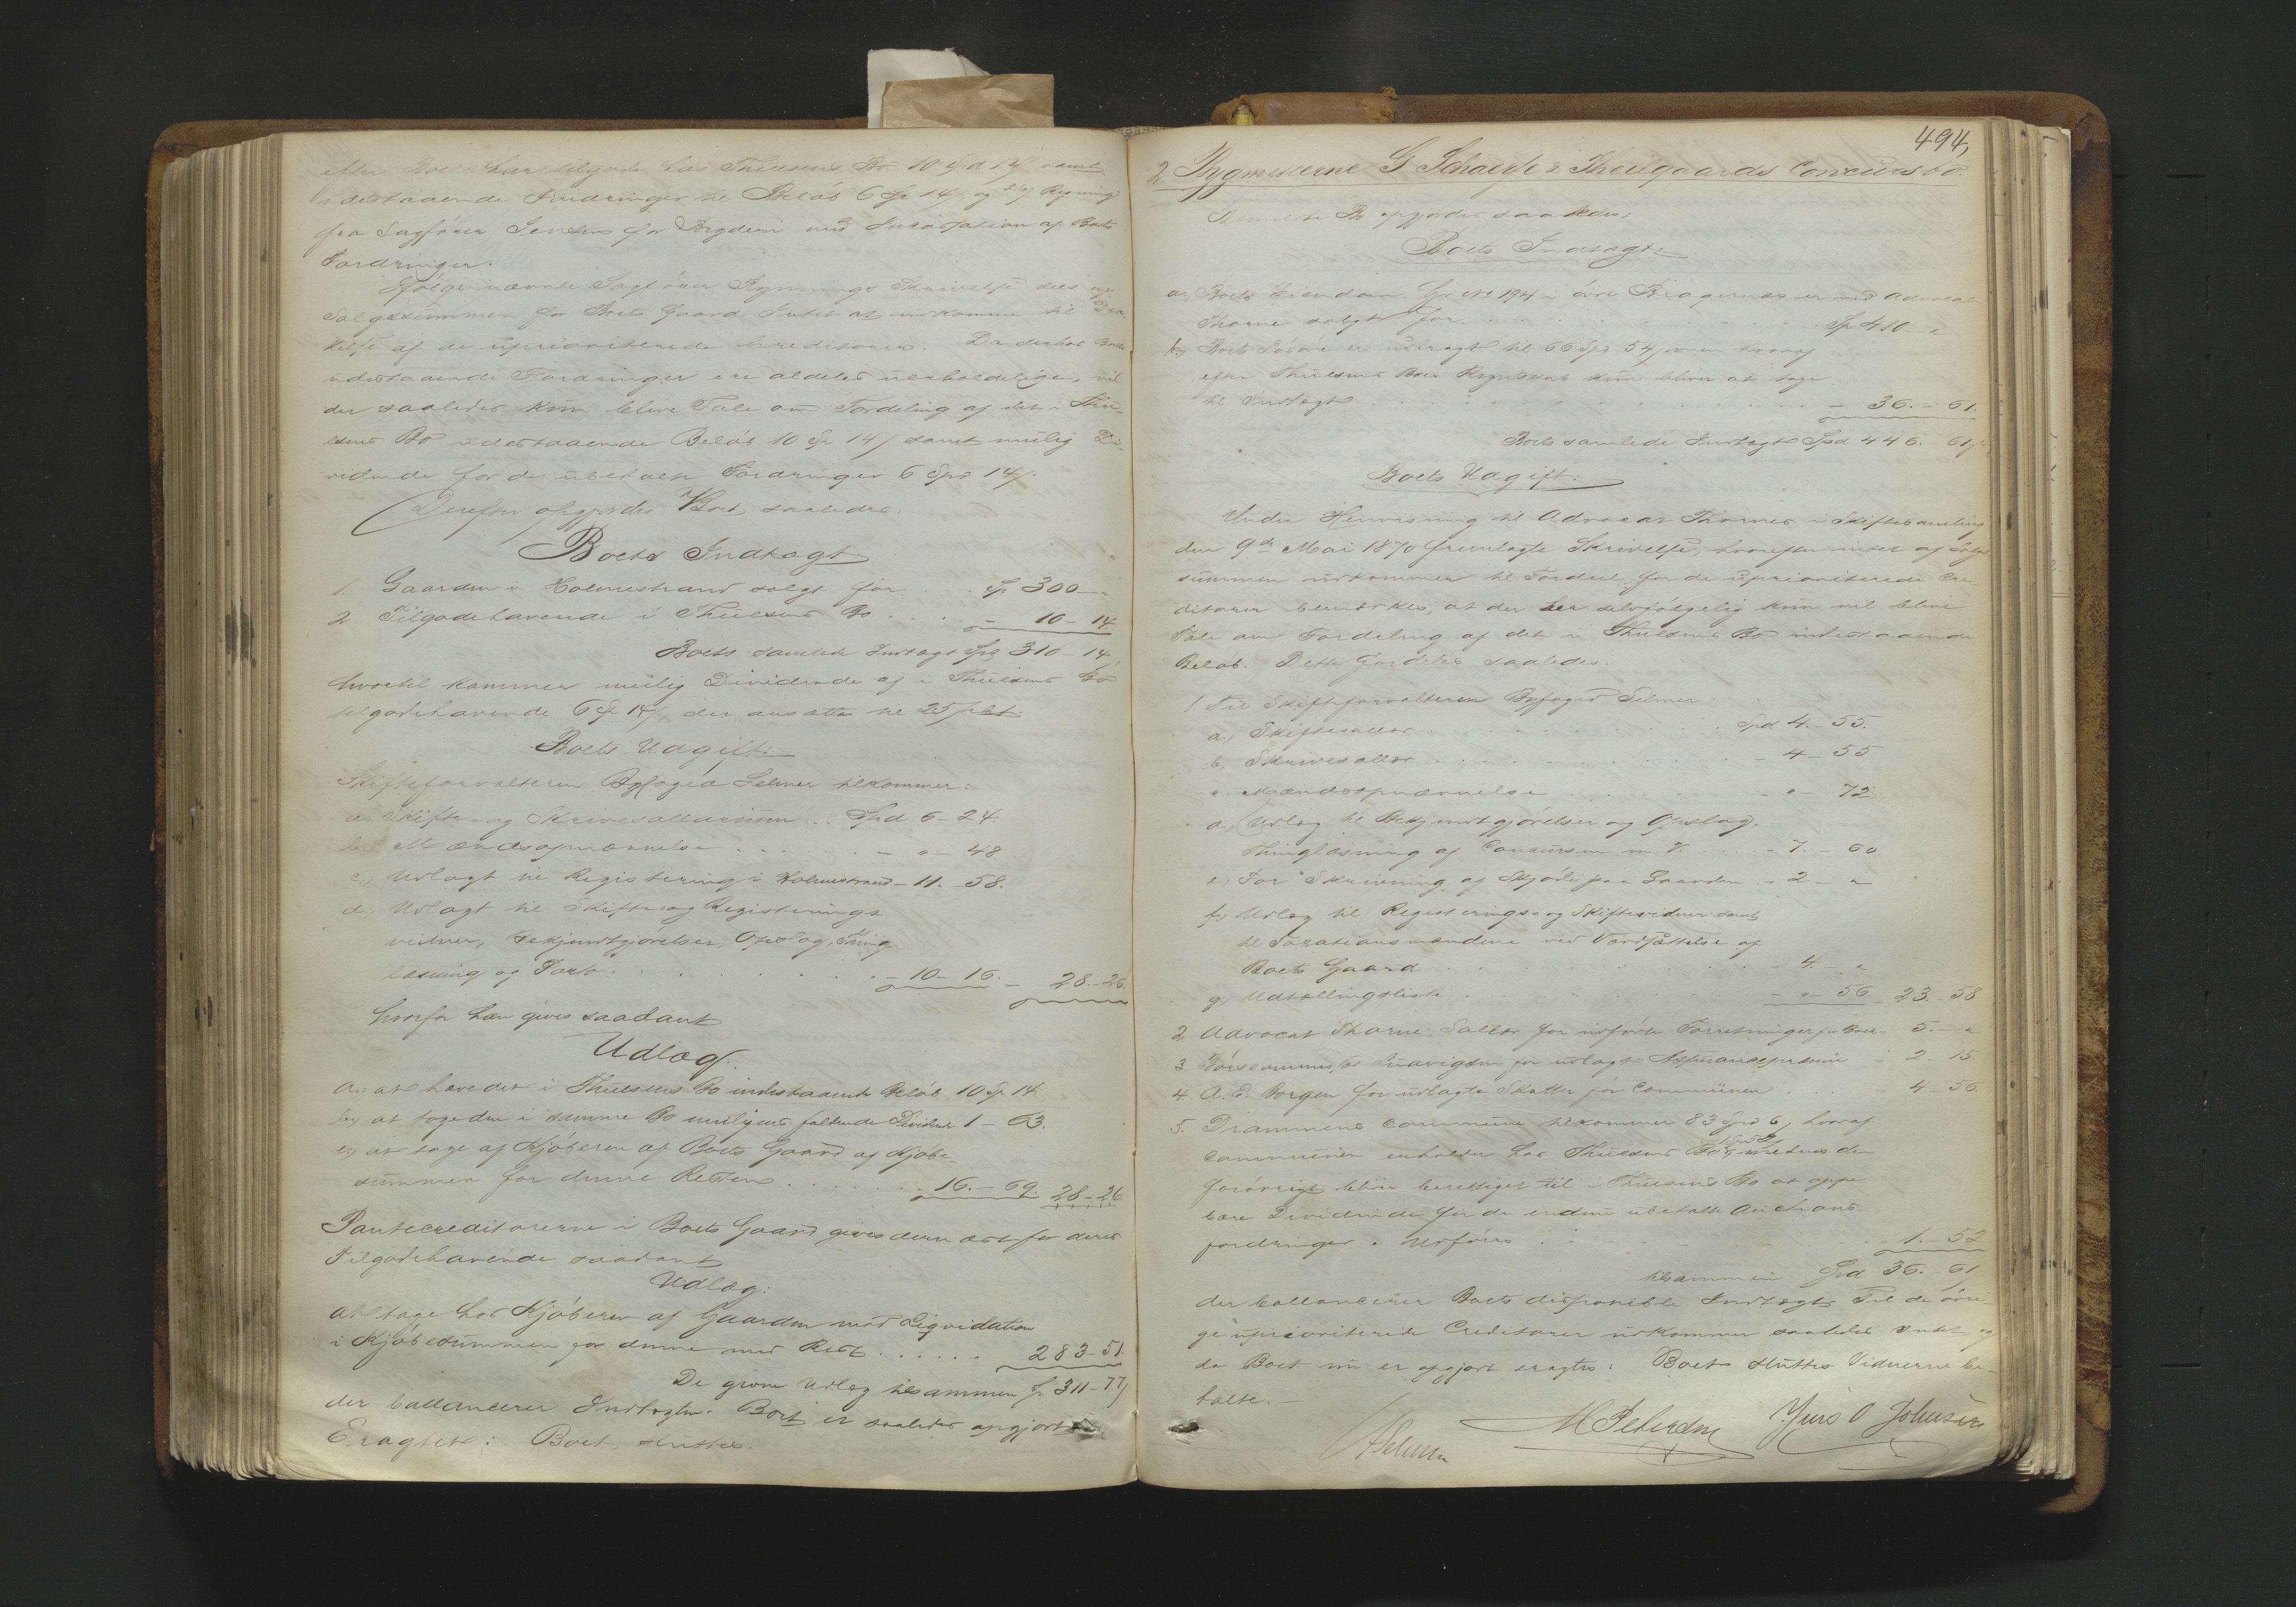 efter Boet har tilgode hos Thuesens Bo 10 Spd 14 samt
udestaaende Fordringer til Beløb 6 Sp 14 og Regning
fra Sagfører Jensen for Brydderi med Incassation af Boets
Fordringer.
Ifølge nævnte Sagfører Skrivelse sees af
Salgssummen for Boets Gaard Intet at udkomme til Dæk-
kelse af de uprioriterede Creditorer. Da derhos Boets
udestaaende Fordringer ere aldeles uerholdelige, vil
der saaledes kun blive Tale om Fordeling af det i Thu-
esens Bo udestaaende Beløb 10 Sp 14 / samt mulig Di-
vidende for de ubetalte Fordringer 6 Spd 14 /.
Derefter opgjordes Boet saaledes:
Boets Indtægt
1. Gaarden i Holmestrand solgt for . . . Sp 300 - "
2 Tilgodehavende i Thuesens Bo . . . . - 10 - 14
Boets samlede Indtægt Spd 310 - 14,
hvortil kommer mulig Dividende af i Thuesens Bo
tilgodehavende 6 Sp 14/, der ansættes til 25 pCt
Boets Udgift:
Skifteforvalteren Byfoged Selmer tilkommer:
a. Skifte- og Skriversallarium . . Spd 6 - 24.
b. Mændsopnævnelse . . . . . - " - 48
c.) Udlagt til Registrering i Holmestrand - 11. - 58.
d.) Udlagt til Skifte og Registrerings
vidner, Bekjendtgjørelser, Opslag, Thing
læsning og Porto . . . . . - 10 - 16. - 28. - 26.
hvorfor han gives saadant
Udlæg:
a.) at hæve det i Thuesens Bo indestaaende Beløb 10 Sp 14
b.) at tage den i samme Bo muligens faldende Dividende 1 - 63.
c.) at tage af Kjøberen af Boets Gaard af Kjøbe-
summen for denne Resten . . . . . . 16. - 69. 28 - 26
Pantecreditorerne i Boets Gaard gives dernæst for deres
Tilgodehavende saadant
Udlæg:
at tage hos Kjøberen af Gaarden mod Liqvidation
i Kjøbesummen for denne med Rest . . . . . . 283 - 51.
De givne Udlæg tilsammen Sp 311 - 77/
der ballancerer Indtægten. Boet er saaledes opgjort
Eragtet: Boet sluttes.
494,
2 Bygmesterne G. Schaerfe & Theilgaards Concursbo.
Bo opgjordes saaledes:
Boets Indtægt
a.) Boets Eiendom Gr No 194 i øvre Bragernæs er ved Advocat
Thorne solgt for . . . . . . . Sp 410 - "
b.) Boets Løsøre er udbragt til 66 Spd 54/ men hvoraf
efter Thuesens Boes Regnskab kun bliver at tage
til Indtægt . . . . . . . . . - 36. - 61.
Boets samlede Indtægt Spd 446. - 61/
Boets Udgift:
Under Henvisning til Advocat Thornes i Skiftesamling
den 9de Mai 1870 fremlagte Skrivelse, hvorefter intet af Salgs
summen udkommer til Fordeel for de uprioriterede Cre
ditorer bemærkes, at der her selvfølgelig kun vil blive
Tale om Fordeling af det i Thuesens Bo indestaaende
Beløb. Dette fordeles saaledes:
1 Til Skifteforvalteren Byfoged Selmer
a.) Skiftesallær . . . . . . . Spd 4. - 55.
b. Skriversallær . . . . . . . - 4 - 55
c. Mændsopnævnelse . . . . . . - " - 72
d.) Udlæg til Bekjendtgjørelser og Opslag,
Thinglæsning af Concursen m. V. . . . . - 7. - 60
e.) For Skrivning af Skjøde paa Gaarden - 2 - "
f.) Udlæg til Registrerings- og Skiftevidner samt
til Taxationsmændene ved Værdsættelse af
Boets Gaard . . . . . . . . - 4. - "
g.) Udtællingsliste . . . . . . . - " - 56 - 23. - 58
2. Advocat Thorne, Sallær for udførte Forretninger for Boet - 5. - "
3. Børscommissær Ludvigsen for udlagt Assurancepræmie - 2 - 15
4. A. E. Borgen for udlagte Skatter for Communen . . . - 4 - 56
5. Drammens Commune tilkommer 83 Spd 6/, hvoraf
Communen erholder hos Thuesens Bo 1 Sp 52/, medens den
forøvrigt bliver berettiget til i Thuesens Bo at oppe
bære Dividende for de endnu ubetalte Auctions
fordringer. Udføres . . . . . . 1. - 52
tilsammen Spd 36. - 61
der ballancerer Boets disponible Indtægt. Til de øvri-
ge uprioriterede Creditorer udkommer saaledes Intet og
da Boet nu er opgjort eragtes: Boet sluttes. Vidnerne be-
talte. -
Selmer
M Petersen Jens O Johnsen